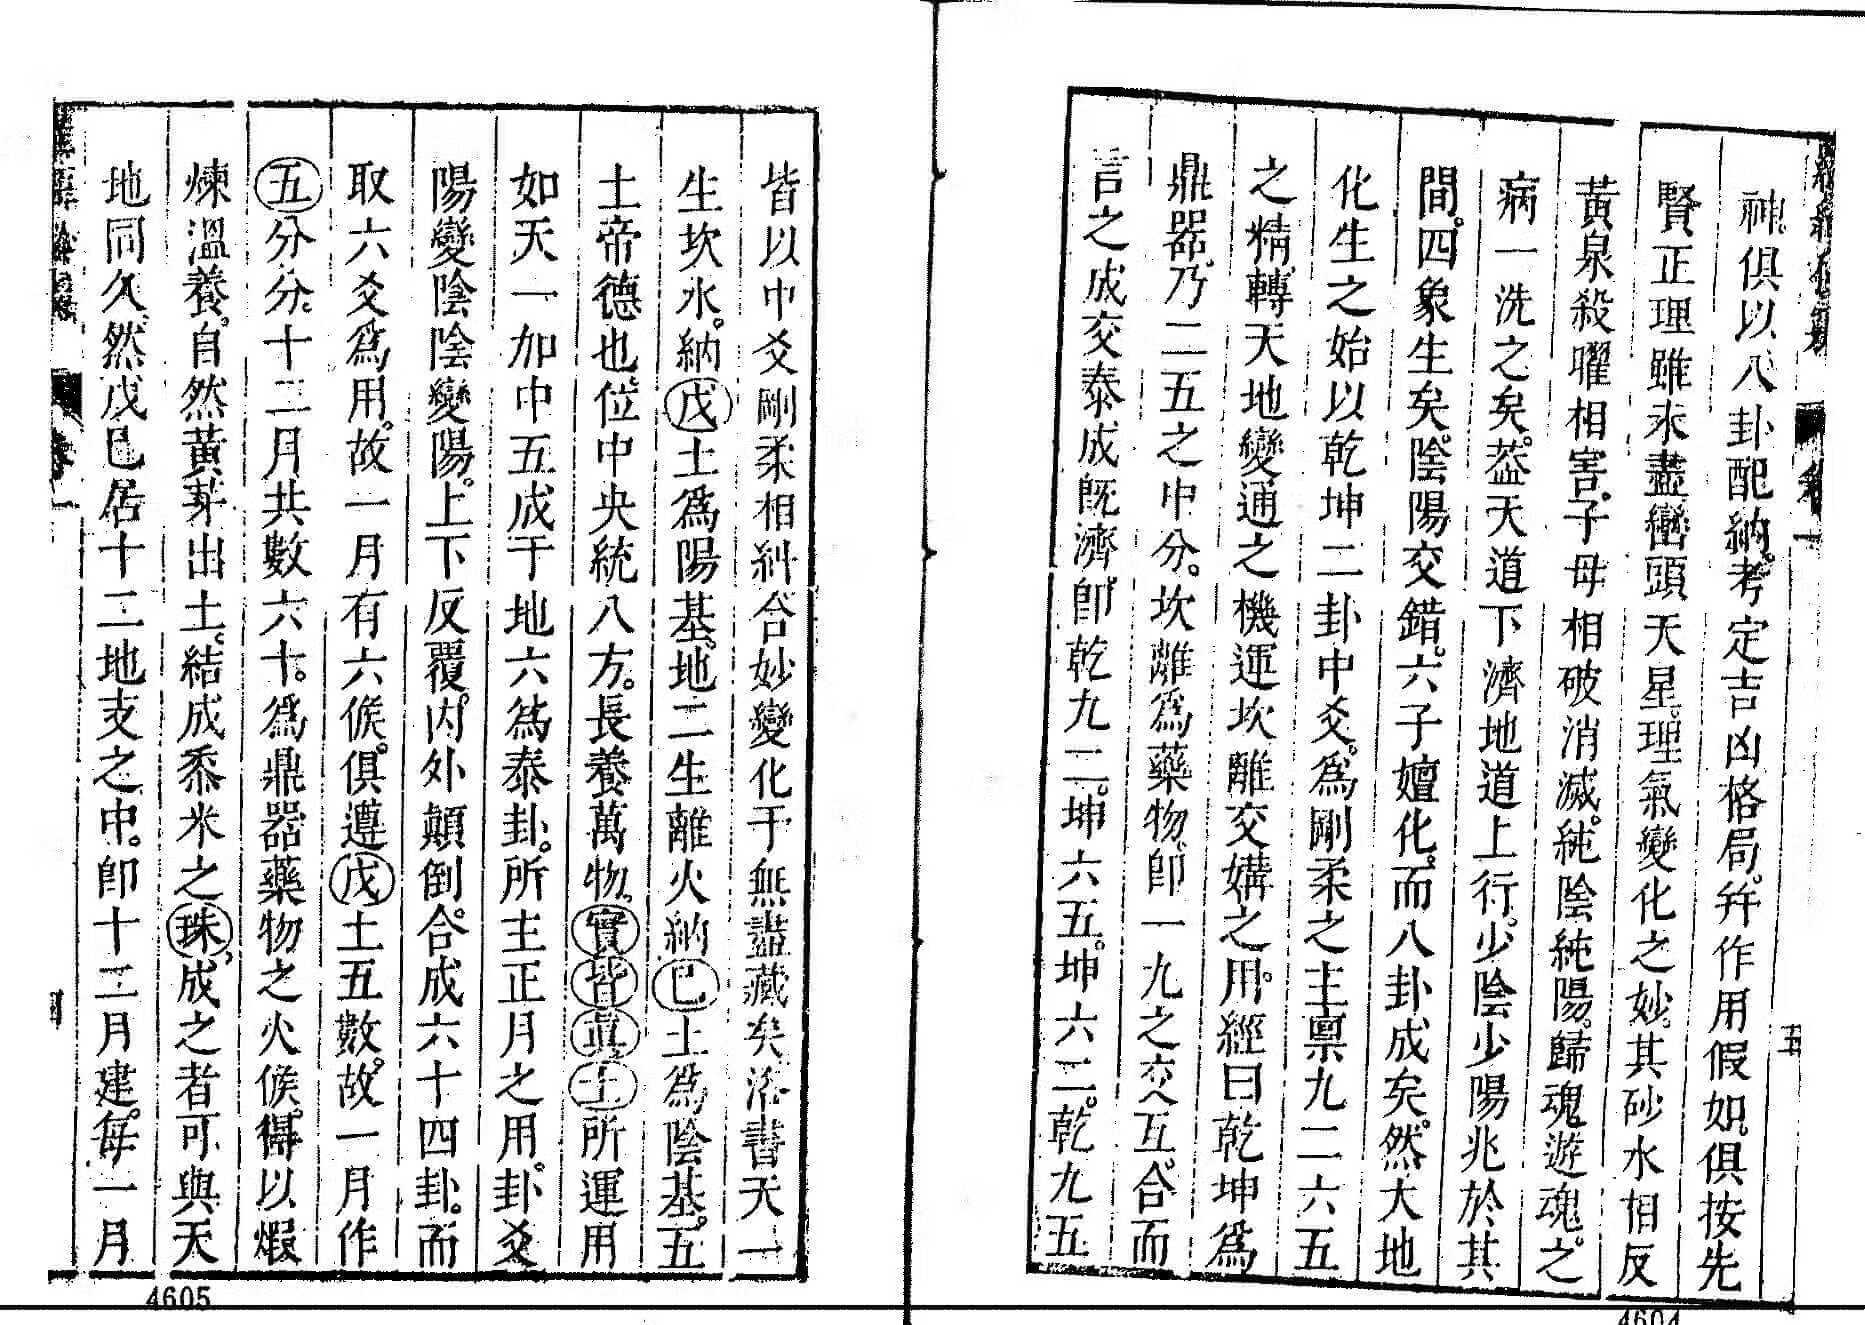 神俱以八卦配納。考定吉凶格局。幷作用假如。俱按先
賢正理。雖未盡巒頭天星。理氣變化之妙。其砂水相反
黃泉殺曜相害。子母相破消滅。純陰純陽。歸魂遊魂。之
病一洗之矣。葢天道下濟地道上行。少陰少陽兆於其
間。四象生矣。陰陽交錯。六子嬗化。而八卦成矣。然大地
化生之始以乾坤二卦中爻。爲剛柔之主禀九二六五
之精。轉天地變通之機。運坎離交媾之用。經曰乾坤爲
鼎器。乃二五之中分。坎離爲藥物。卽一九之交互。合而
言之成交泰。成旣濟。卽乾九二。坤六五。坤六二。乾九五
五
皆以中爻剛柔相糾合妙變化于無盡藏矣。洛書天一
生坎水。納戊土爲陽基。地二生離火納己土爲陰基。五
土帝德也。位中央統八方。長養萬物。實皆眞土所運用
如天一加中五成于地六爲泰卦。所主正月之用。卦爻
陽變陰陰變陽。上下反覆。內外顛倒。合成六十四卦。而
取六爻爲用。故一月有六候。俱遵戊土五數。故一月作
五分分。十二月共數六十。爲鼎器藥物之火候。得以煅
煉溫養。自然黃芽出土。結成黍米之珠。成之者可與天
地同久。然戊己居十二地支之中。卽十二月建。每一月
卷一
四
4605
4604